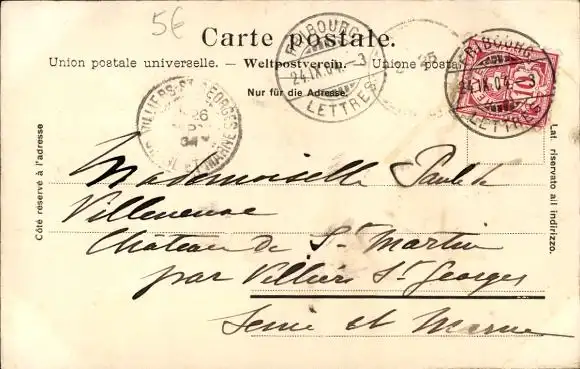 5€
Carte postale.
Union postale universelle. — Weltpostverein. — Unione posta
Nur für die Adresse.
FRIBOURG
24.IX.04.-3
LETTRES
FRIBOURG
24.IX.04.
LETTRES
10
VILLIERS-ST GEORGES
26
04
SEINE ET MARNE
Côté réservé à l'adresse
Lat. riservato all indirizzo.
Mademoiselle Paule de
Villeneuve
Château de St Martin
par Villiers St Georges
Seine et Marne